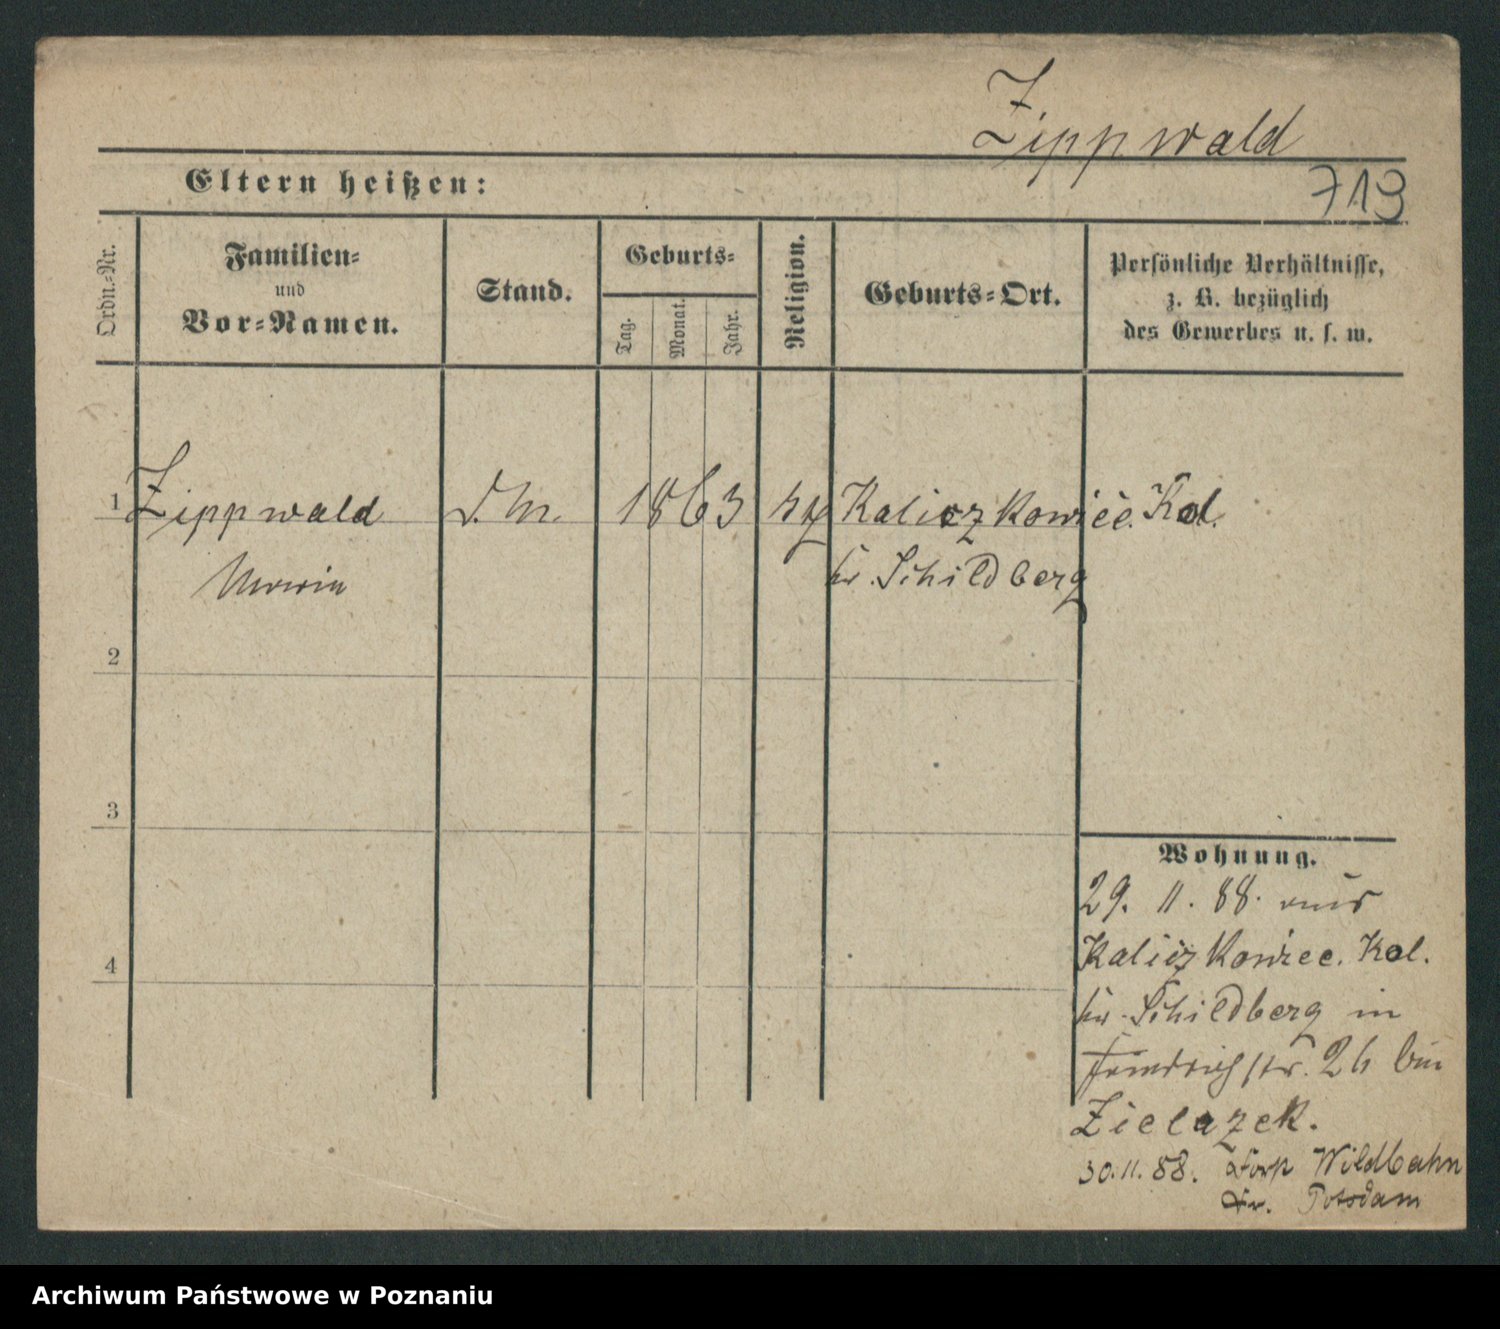 Zippwald
Eltern heißen:
719
Ordn.-Nr.
Familien-
und
Vor-Namen.
Stand.
Geburts-
Tag.
Monat.
Jahr.
Religion.
Geburts-Ort.
Persönliche Verhältnisse,
z. B. bezüglich
des Gewerbes u. s. w.
1 Zippwald 1863 Kaliszkowice. Kal.
kr. Schildberg
2
3
4
Wohnung.
29. 11. 88. aus
Kaliszkowice. Kal.
kr. Schildberg in
Friedrichstr. 26 bei
Zielazek.
30.11.88. Dorf Wildbahn
Kr. Potsdam
Archiwum Państwowe w Poznaniu